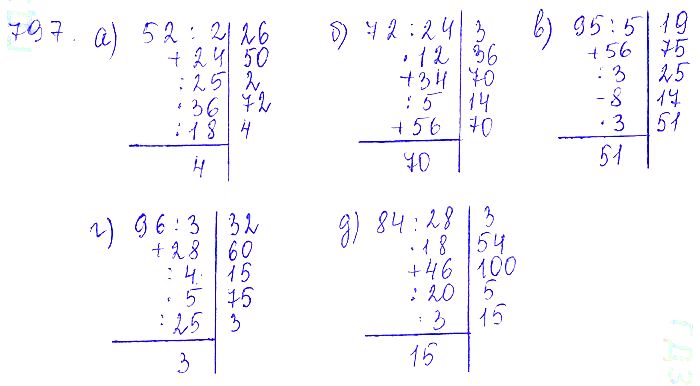 797. а) 52 : 2 | 26
+ 24 | 50
: 25 | 2
· 36 | 72
: 18 | 4
4
б) 72 : 24 | 3
· 12 | 36
+ 34 | 70
: 5 | 14
+ 56 | 70
70
в) 95 : 5 | 19
+ 56 | 75
: 3 | 25
- 8 | 17
· 3 | 51
51
г) 96 : 3 | 32
+ 28 | 60
: 4 | 15
· 5 | 75
: 25 | 3
3
д) 84 : 28 | 3
· 18 | 54
+ 46 | 100
: 20 | 5
· 3 | 15
15